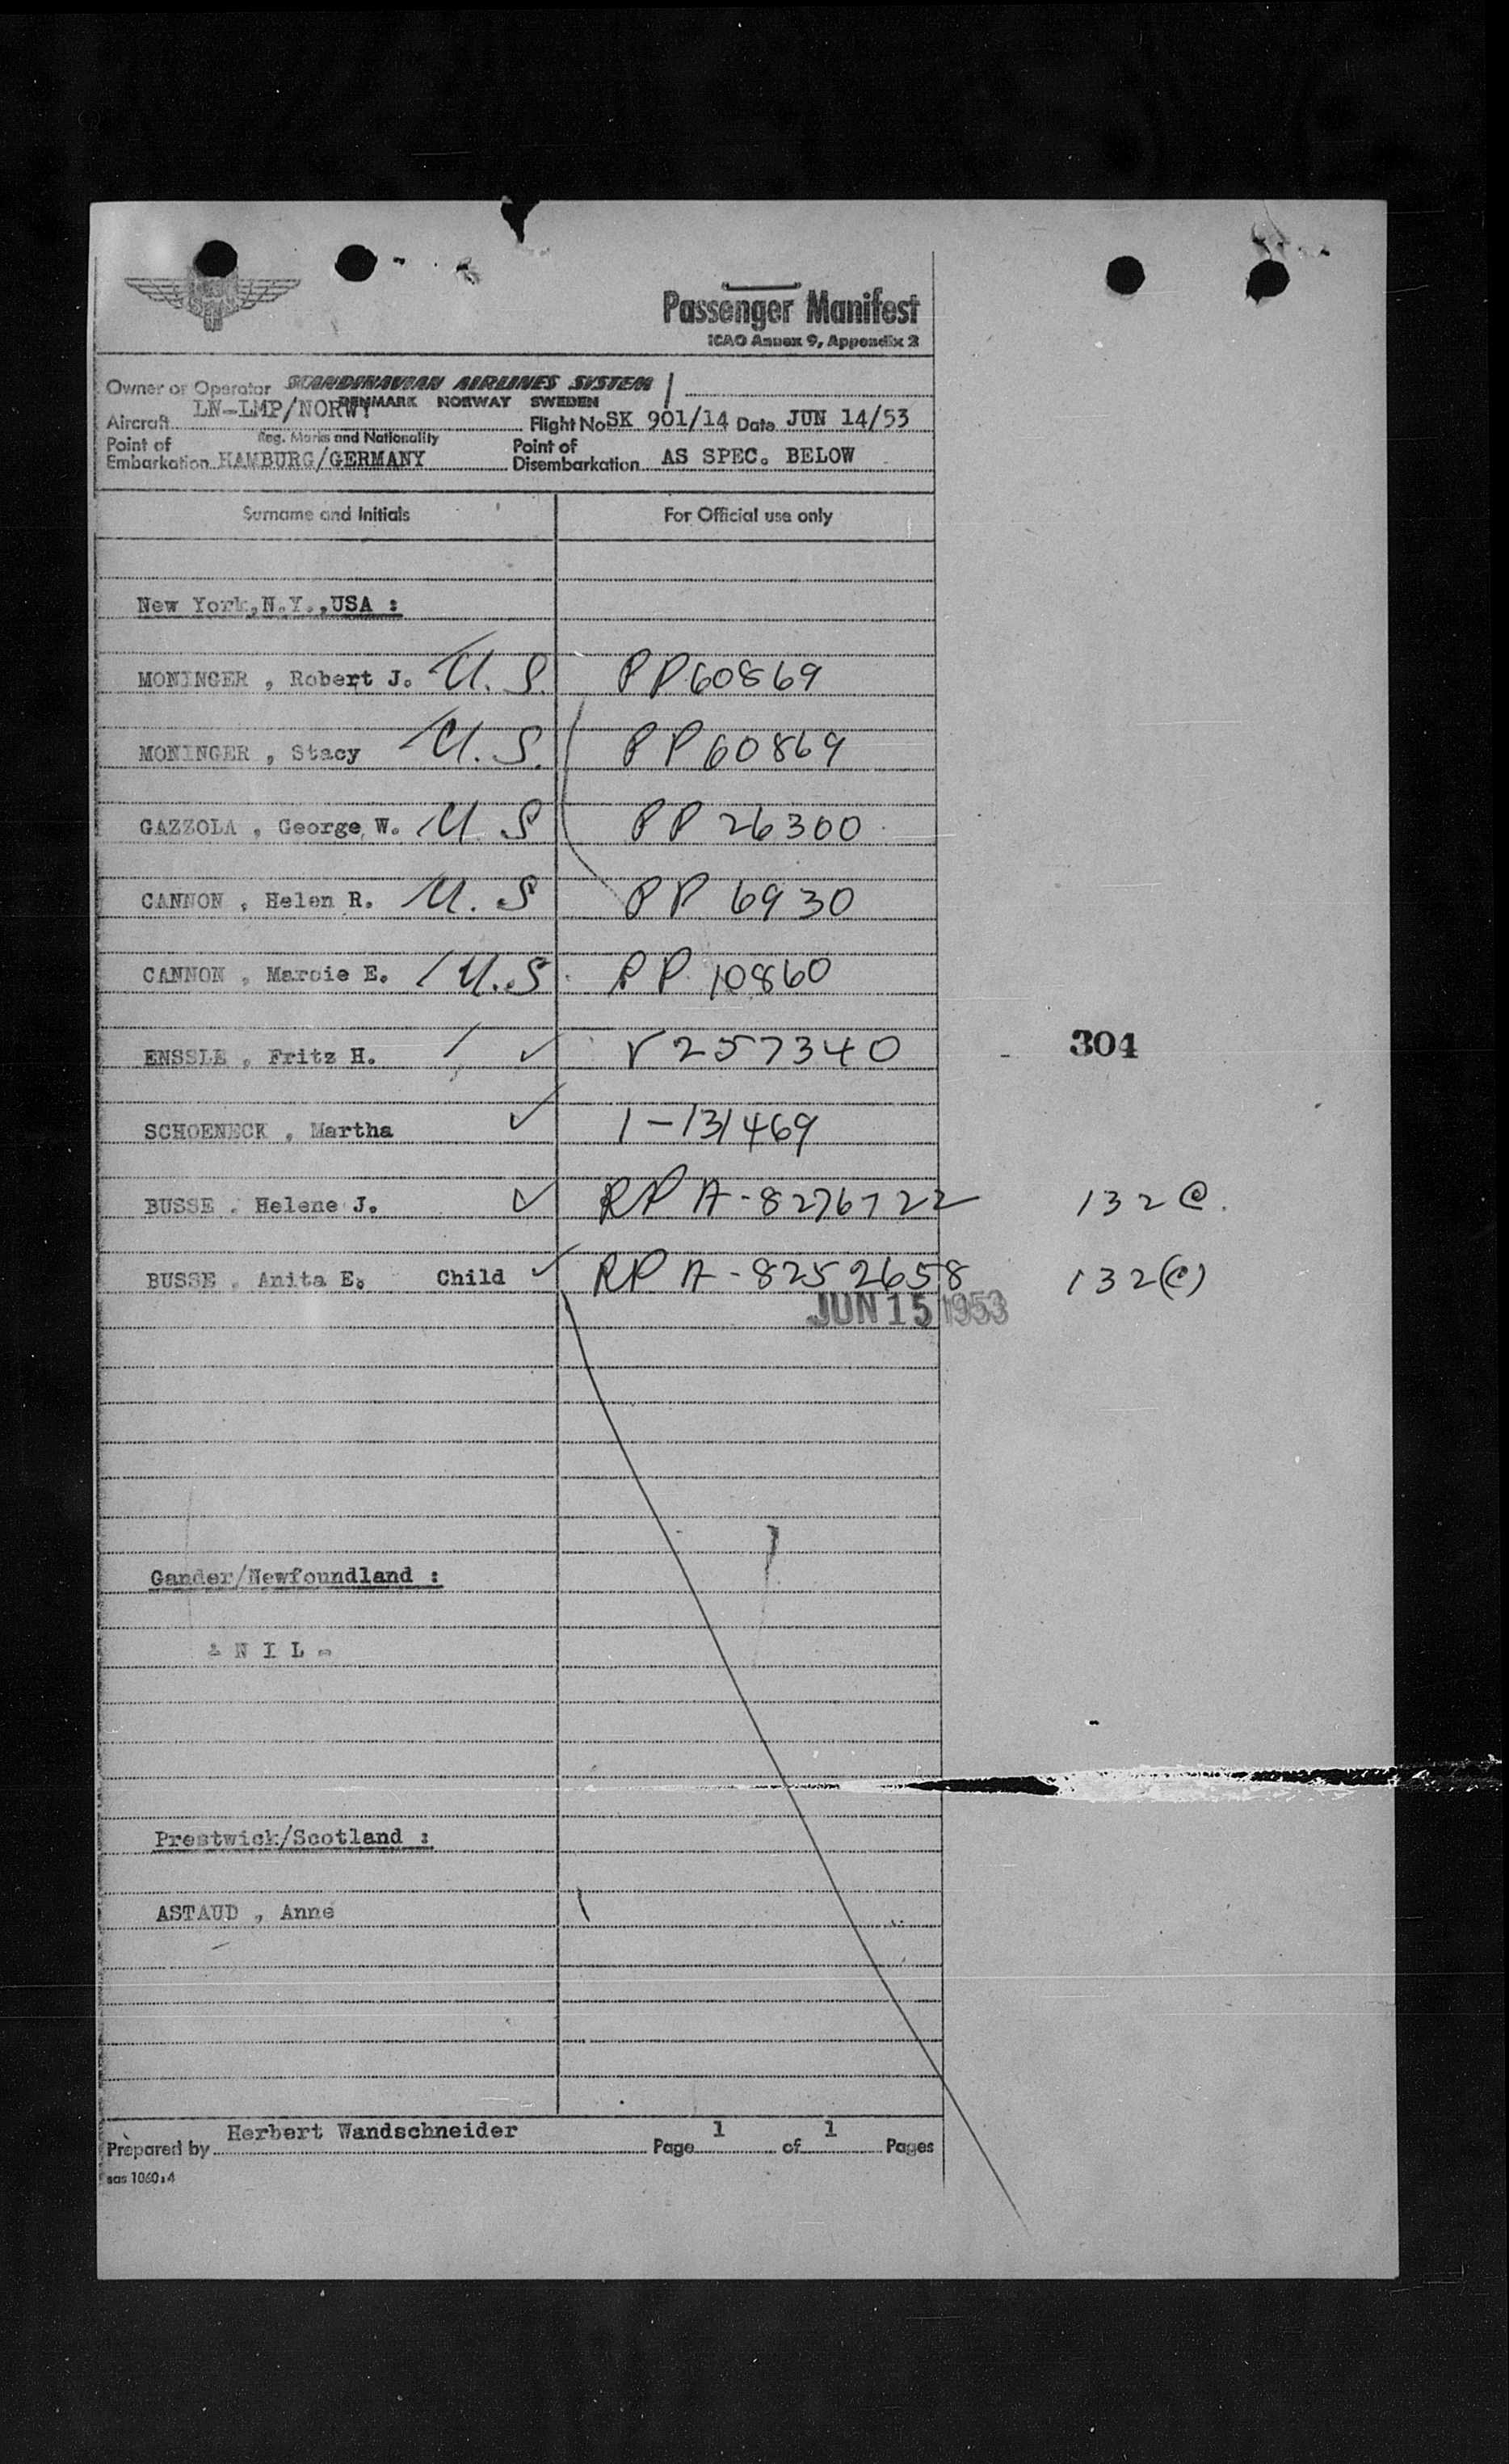 Passenger Manifest
ICAO Annex 9, Appendix 2
Owner or Operator SCANDINAVIAN AIRLINES SYSTEM
DENMARK NORWAY SWEDEN
Aircraft LN-LMP/NORWY Flight No SK 901/14 Date JUN 14/53
Reg. Marks and Nationality
Point of Embarkation HAMBURG/GERMANY Point of Disembarkation AS SPEC. BELOW
Surname and Initials For Official use only
New York,N.Y.,USA :
MONINGER , Robert J. U.S. PP60869
MONINGER , Stacy U.S. PP60869
GAZZOLA , George W. U S PP 26300
CANNON , Helen R. U.S PP 6930
CANNON , Marcie E. U.S. PP 10860
ENSSLE , Fritz H. ✓ V257340 304
SCHOENECK , Martha ✓ 1-131469
BUSSE , Helene J. ✓ RP A-8276722 132 C.
BUSSE , Anita E. Child ✓ RP A-8252658 132(C)
JUN 15 1953
Gander/Newfoundland :
- N I L -
Prestwick/Scotland :
ASTAUD , Anne
Prepared by Herbert Wandschneider Page 1 of 1 Pages
sas 1060:4